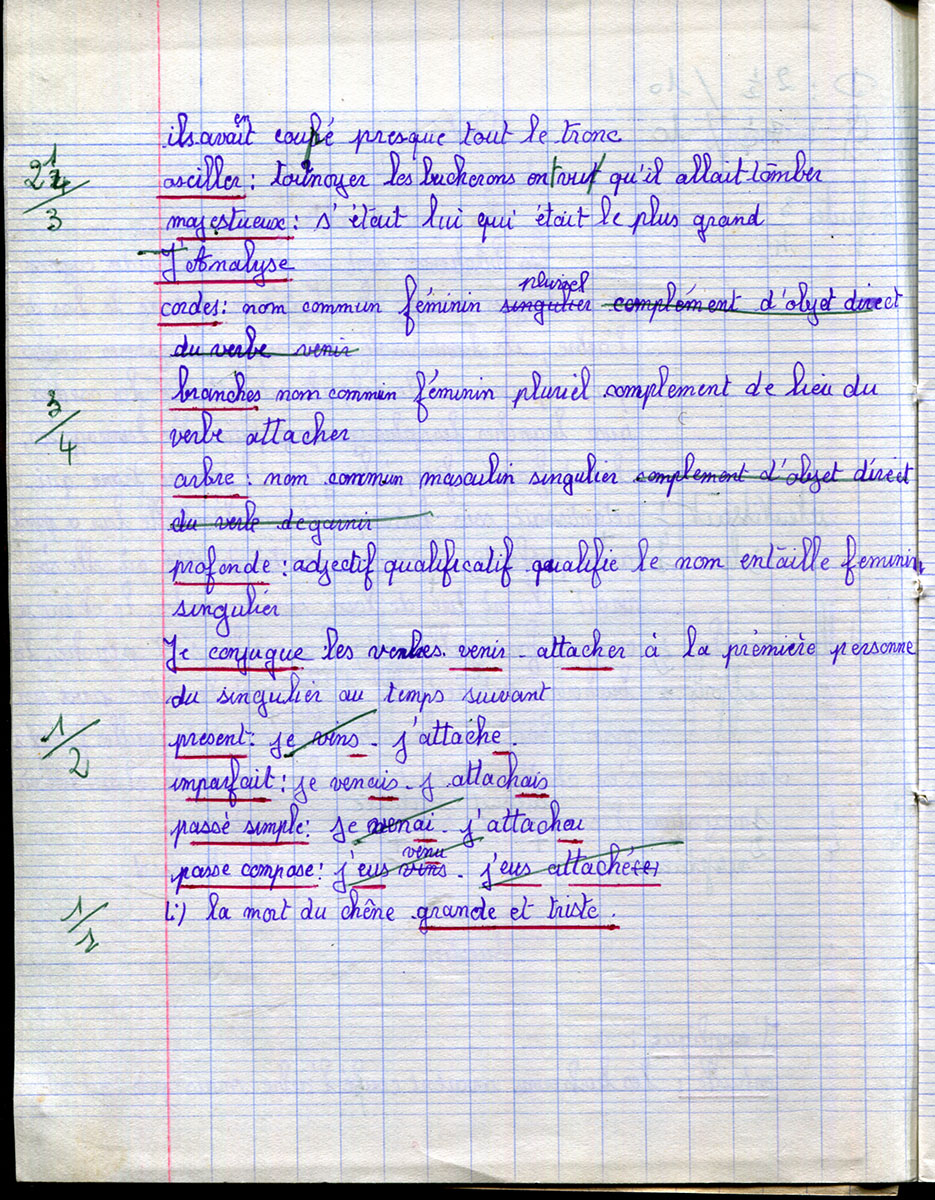 ils avaient coupé presque tout le tronc
2 1/4
3
asciller : tournoyer les bucherons ont vut qu'il allait tômber
majestueux : s'était lui qui était le plus grand
J'Analyse
cordes : nom commun féminin singulier pluriel complément d'objet direct
du verbe venir
branches nom commun féminin pluriel complement de lieu du
3/4
verbe attacher
arbre : nom commun masculin singulier complement d'objet direct
du verbe degarnir
profonde : adjectif qualificatif qualifie le nom entaille feminin
singulier
Je conjugue les verbes venir - attacher à la prémière personne
du singulier au temps suivant
1/2
présent : je vins - j'attache.
imparfait : je venais - j attachais
passé simple : je venai - j'attachai
passe compose : j'eus vins venu - j'eus attachéter
1/1
L:) la mort du chêne grande et triste.